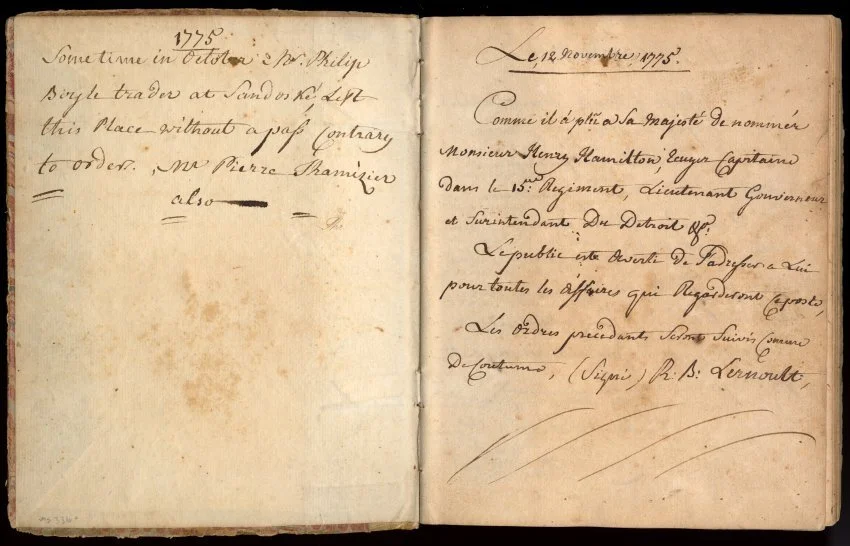 1775
Some time in October Mr. Philip
Boyle trader at Sandoské, Left
this Place without a pass Contrary
to order. Mr Pierre
also
Le, 12 Novembre, 1775.
Comme il á plû a Sa Majesté de nommér
Monsieur Henry Hamilton, Ecuyer Capitaine
dans le 15me Regiment, Lieutenant Gouverneur
et Surintendant Du Detroit &c.
Le public est Averti de S'adresser a Lui
pour toutes les Affaires qui Regarderont Ce poste,
Les Ordres précedants Seront Suivis Comme
De Coutume, (Signé) R: B: Lernoult,